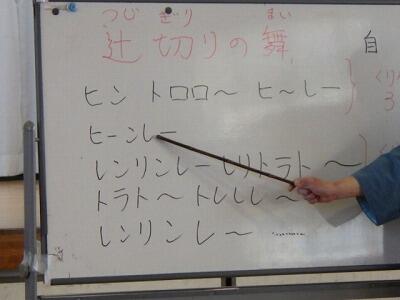 つじ ぎり まい
辻切りの舞
自
ヒン トロロ～ ヒ～レー
ヒーンレー
レンリンレーレリトラト～
トラト～ トレレレ～
レンリンレ～ ┈